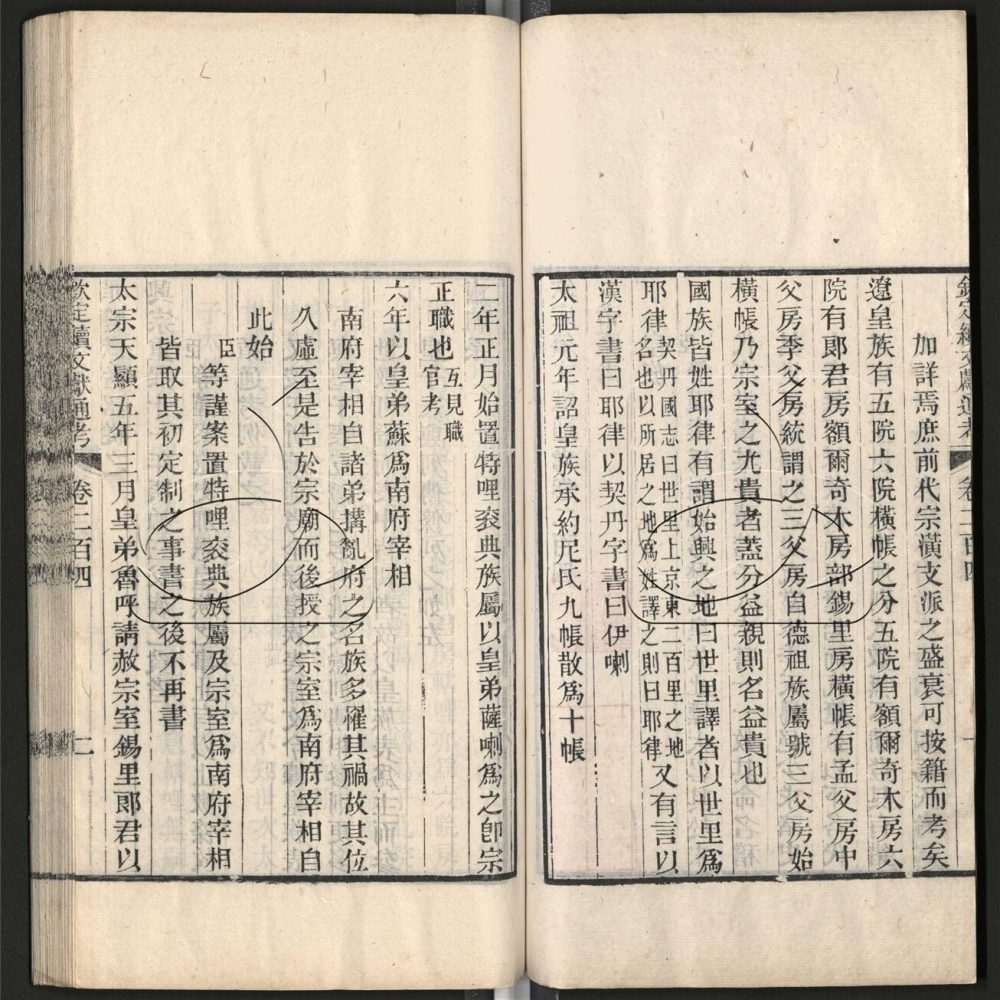 加詳焉庶前代宗潢支派之盛衰可按籍而考矣
遼皇族有五院六院橫帳之分五院有額爾奇木房六
院有郞君房額爾奇木房部錫里房橫帳有孟父房中
父房季父房統謂之三父房自德祖族屬號三父房始
橫帳乃宗室之尤貴者蓋分益親則名益貴也
國族皆姓耶律有謂始興之地曰世里譯者以世里爲
耶律契丹國志曰世里上京東二百里之地名也以所居之地爲姓譯之則曰耶律又有言以
漢字書曰耶律以契丹字書曰伊喇
太祖元年詔皇族承約尼氏九帳散爲十帳
二年正月始置特哩袞典族屬以皇弟薩喇爲之卽宗
正職也互見職官考
六年以皇弟蘇爲南府宰相
南府宰相自諸弟搆亂府之名族多罹其禍故其位
久虛至是告於宗廟而後授之宗室爲南府宰相自
此始
臣等謹案置特哩袞典族屬及宗室爲南府宰相
皆取其初定制之事書之後不再書
太宗天顯五年三月皇弟魯呼請赦宗室錫里郞君以
欽定續文獻通考 卷二百四 二